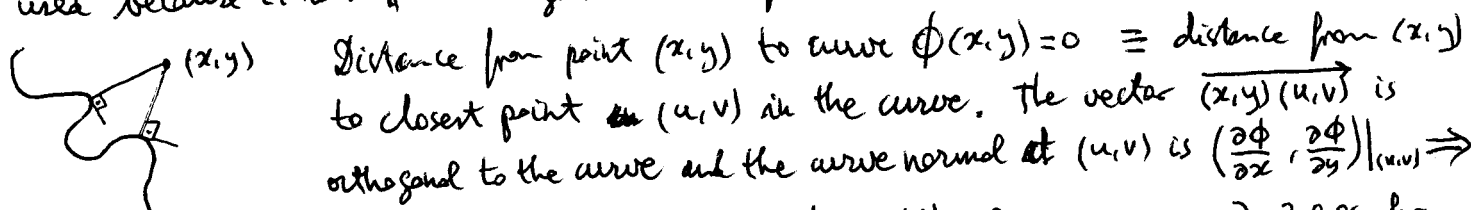 used because
(x,y) Distance from point (x,y) to curve ϕ(x,y)=0 ≡ distance from (x,y)
to closest point (u,v) in the curve. The vector (x,y)(u,v) is
orthogonal to the curve and the curve normal at (u,v) is (∂ϕ/∂x, ∂ϕ/∂y)|(u,v) ⇒